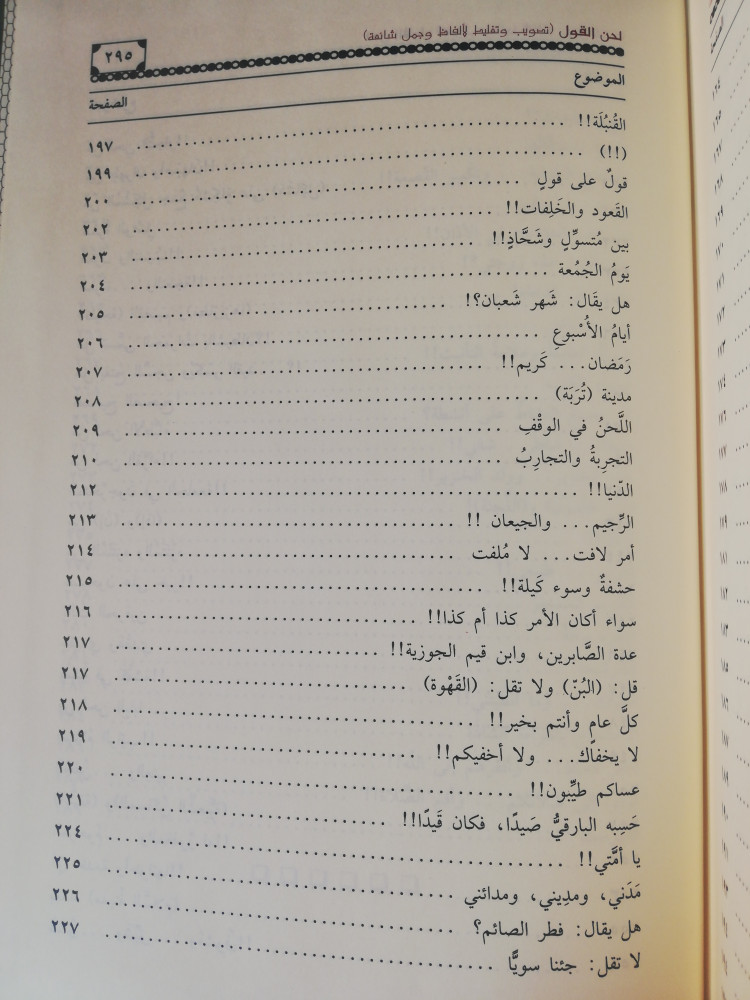 لحن القول (تصويب وتغليط لألفاظ وجمل شائعة)
٢٩٥
الموضوع الصفحة
القُنبُلَة!! ........ ١٩٧
(!!) ........ ١٩٩
قولٌ على قولٍ ........ ٢٠٠
القَعود والخَلِفات!! ........ ٢٠٢
بين مُتسوِّلٍ وشَحَّاذٍ!! ........ ٢٠٣
يَومُ الجُمُعة ........ ٢٠٤
هل يقَال: شَهر شَعبان؟! ........ ٢٠٥
أيامُ الأُسْبوعِ ........ ٢٠٦
رَمَضان... كَريم!! ........ ٢٠٧
مدينة (تُرَبَة) ........ ٢٠٨
اللَّحنُ في الوقْفِ ........ ٢٠٩
التجرِبةُ والتجارِبُ ........ ٢١٠
الدّنيا!! ........ ٢١٢
الرِّجيم... والجيعان !! ........ ٢١٣
أمر لافت... لا مُلفت ........ ٢١٤
حشفةٌ وسوء كَيلة!! ........ ٢١٥
سواء أكان الأمر كذا أم كذا!! ........ ٢١٦
عدة الصَّابرين، وابن قيم الجوزية!! ........ ٢١٧
قل: (البُنّ) ولا تقل: (القَهْوة) ........ ٢١٧
كلَّ عامٍ وأنتم بخير!! ........ ٢١٨
لا يخفاك... ولا أخفيكم!! ........ ٢١٩
عساكم طيِّبون!! ........ ٢٢٠
حَسِبه البارقيُّ صَيدًا، فكان قَيدًا!! ........ ٢٢١
يا أمَّتي!! ........ ٢٢٤
مَدَني، ومدِيني، ومدائني ........ ٢٢٥
هل يقال: فطر الصائم؟ ........ ٢٢٦
لا تقل: جئنا سويًّا ........ ٢٢٧